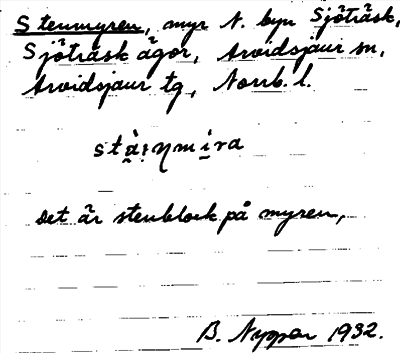 Stenmyren, myr N. byn Sjöträsk,
Sjöträsk ägor, Arvidsjaur sn,
Arvidsjaur tg, Norrb. l.
det är stenblock på myren,
B. Nyman 1932.